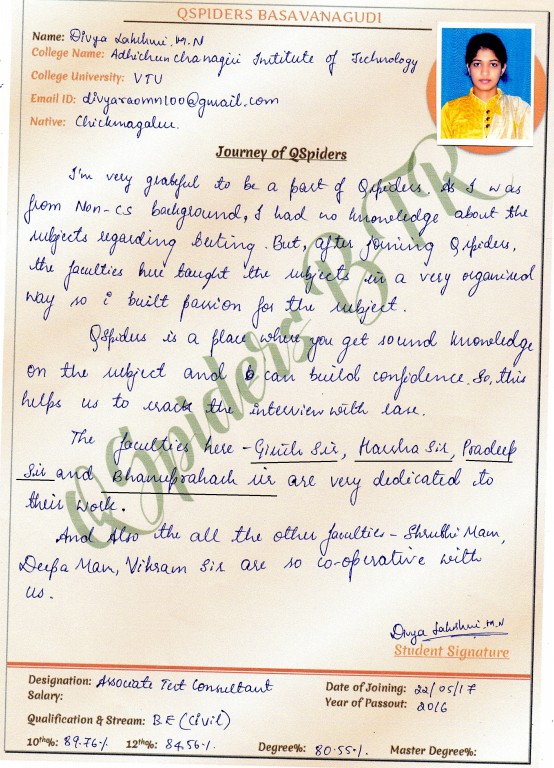 QSPIDERS BASAVANAGUDI
Name: Divya Lakshmi .M.N
College Name: Adhichunchanagiri Institute of Technology
College University: VTU
Email ID: divyaraomn100@gmail.com
Native: Chickmagalur.
Journey of QSpiders
I'm very grateful to be a part of Qspiders. As I was
from Non-CS background, I had no knowledge about the
subjects regarding testing. But, after joining Qspiders,
the faculties here taught the subjects in a very organised
way so i built passion for the subject.
QSpiders is a place where you get sound knowledge
on the subject and can build confidence. So, this
helps us to crack the interview with ease.
The faculties here - Girish Sir, Harsha Sir, Pradeep
Sir and Bhanuprakash sir are very dedicated to
their work.
And Also the all the other faculties - Shruthi Mam,
Deepa Mam, Vikram Sir are so co-operative with
us.
QSpiders BTR
Divya Lakshmi .M.N
Student Signature
Designation: Associate Test Consultant
Date of Joining: 22/05/17
Salary:
Year of Passout: 2016
Qualification & Stream: B.E (Civil)
10th%: 89.76% 12th%: 84.56% Degree%: 80.55% Master Degree%: